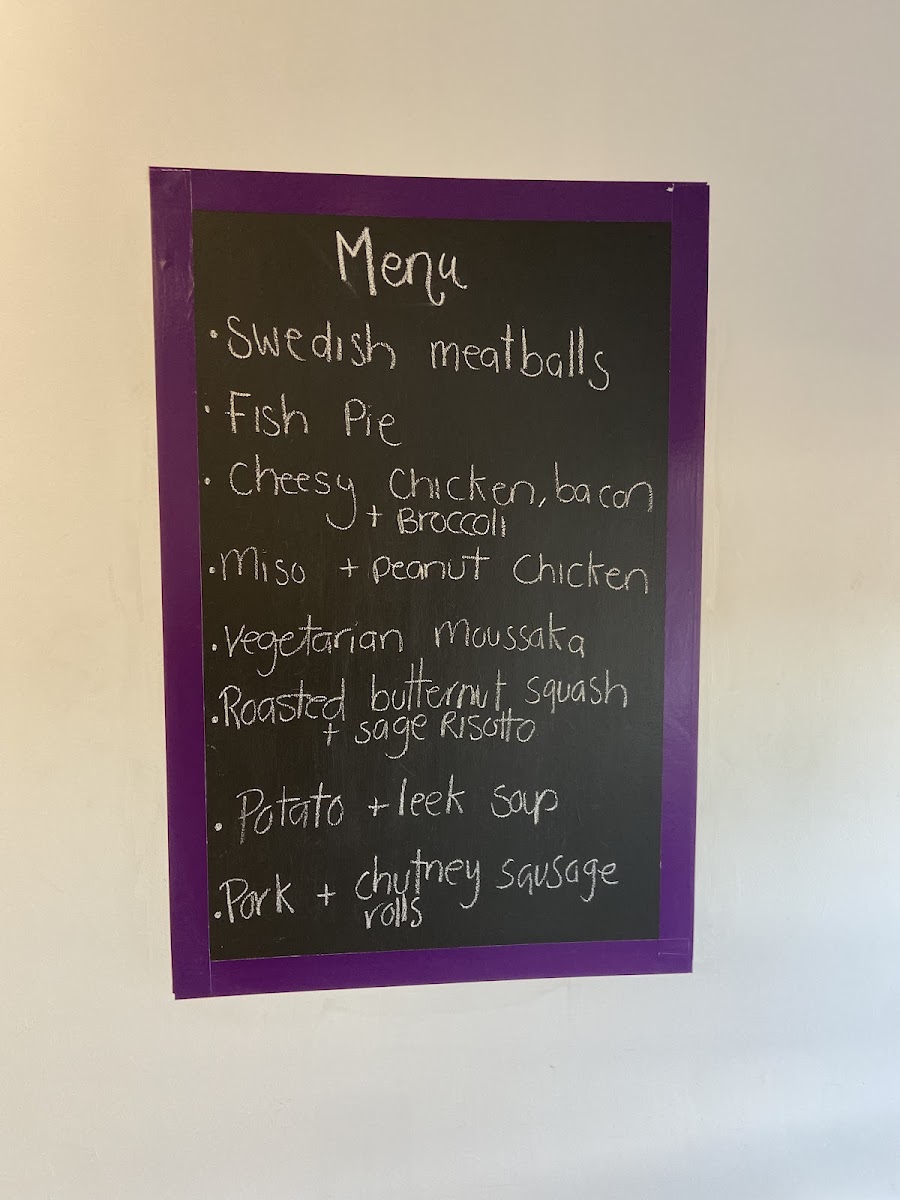 Menu
· Swedish meatballs
· Fish Pie
· Cheesy Chicken, bacon
+ Broccoli
· Miso + peanut Chicken
· Vegetarian moussaka
· Roasted butternut squash
+ sage Risotto
· Potato + leek soup
· Pork + chutney sausage
rolls